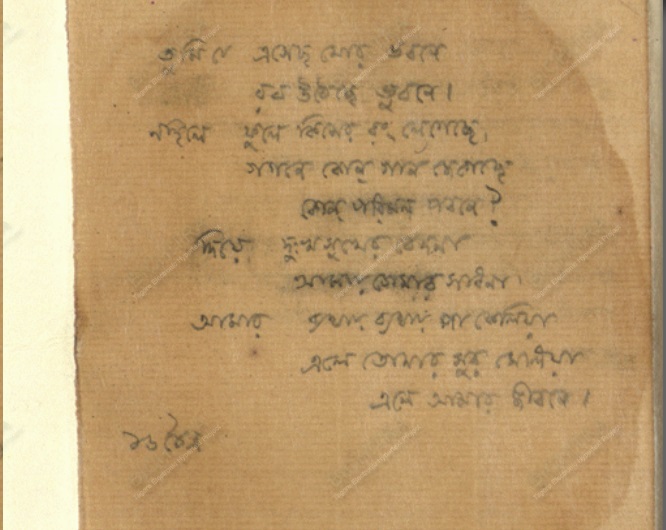 তুমি যে এসেছ মোর ভবনে
রব উঠেছে ভুবনে।
নহিলে ফুলে কিসের রং লেগেছে,
গগনে কোন্ গান জেগেছে
কোন্ পরিমল পবনে?
দিয়ে দুঃখ সুখের বেদনা
আমায় তোমার সাধনা।
আমার ব্যথায় ব্যথায় পা ফেলিয়া
এলে তোমার সুর মেলিয়া
এলে আমার জীবনে।
১৬ চৈত্র